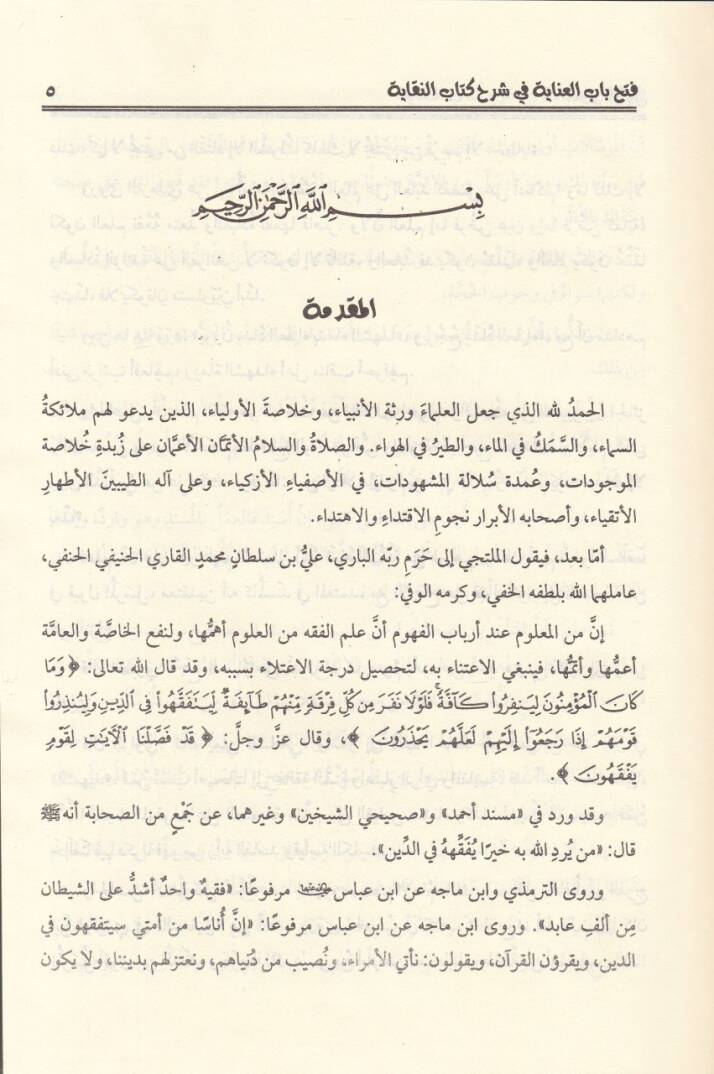 فتح باب العناية في شرح كتاب النقاية ٥
بِسْمِ اللَّهِ الرَّحْمَنِ الرَّحِيمِ
المقدمة
الحمدُ لله الذي جعل العلماءَ ورثة الأنبياء، وخلاصةَ الأولياء، الذين يدعو لهم ملائكةُ
السماء، والسَّمَكُ في الماء، والطيرُ في الهواء. والصلاةُ والسلامُ الأتمَّان الأعمَّان على زُبدةِ خُلاصة
الموجودات، وعُمدة سُلالة المشهودات، في الأصفياءِ الأزكياء، وعلى آله الطيبينَ الأطهارِ
الأتقياء، وأصحابه الأبرار نجومِ الاقتداءِ والاهتداء.
أمّا بعد، فيقول الملتجي إلى حَرَمِ ربّه الباري، عليُّ بن سلطانٍ محمدٍ القاري الحنيفي الحنفي،
عاملهما الله بلطفه الخفي، وكرمه الوفي:
إنَّ من المعلوم عند أرباب الفهوم أنَّ علم الفقه من العلوم أهمُّها، ولنفع الخاصَّة والعامَّة
أعمُّها وأتمُّها، فينبغي الاعتناء به، لتحصيل درجة الاعتلاء بسببه، وقد قال الله تعالى: ﴿ وَمَا
كَانَ الْمُؤْمِنُونَ لِيَنفِرُوا كَآفَّةً ۚ فَلَوْلَا نَفَرَ مِن كُلِّ فِرْقَةٍ مِّنْهُمْ طَآئِفَةٌ لِّيَتَفَقَّهُوا فِي الدِّينِ وَلِيُنذِرُوا
قَوْمَهُمْ إِذَا رَجَعُوٓا إِلَيْهِمْ لَعَلَّهُمْ يَحْذَرُونَ ﴾، وقال عزَّ وجلَّ: ﴿ قَدْ فَصَّلْنَا الْآيَاتِ لِقَوْمٍ
يَفْقَهُونَ ﴾.
وقد ورد في «مسند أحمد» و«صحيحي الشيخين» وغيرهما، عن جَمْعٍ من الصحابة أنه ﷺ
قال: «من يُردِ الله به خيرًا يُفَقِّههُ في الدِّين».
وروى الترمذي وابن ماجه عن ابن عباس رضي الله عنهما مرفوعًا: «فقيهٌ واحدٌ أشدُّ على الشيطان
مِن ألفِ عابد». وروى ابن ماجه عن ابن عباس مرفوعًا: «إنَّ أُناسًا من أمتي سيتفقهون في
الدين، ويقرؤن القرآن، ويقولون: نأتي الأمراء، ونُصيب من دُنياهم، ونعتزلهم بديننا، ولا يكون